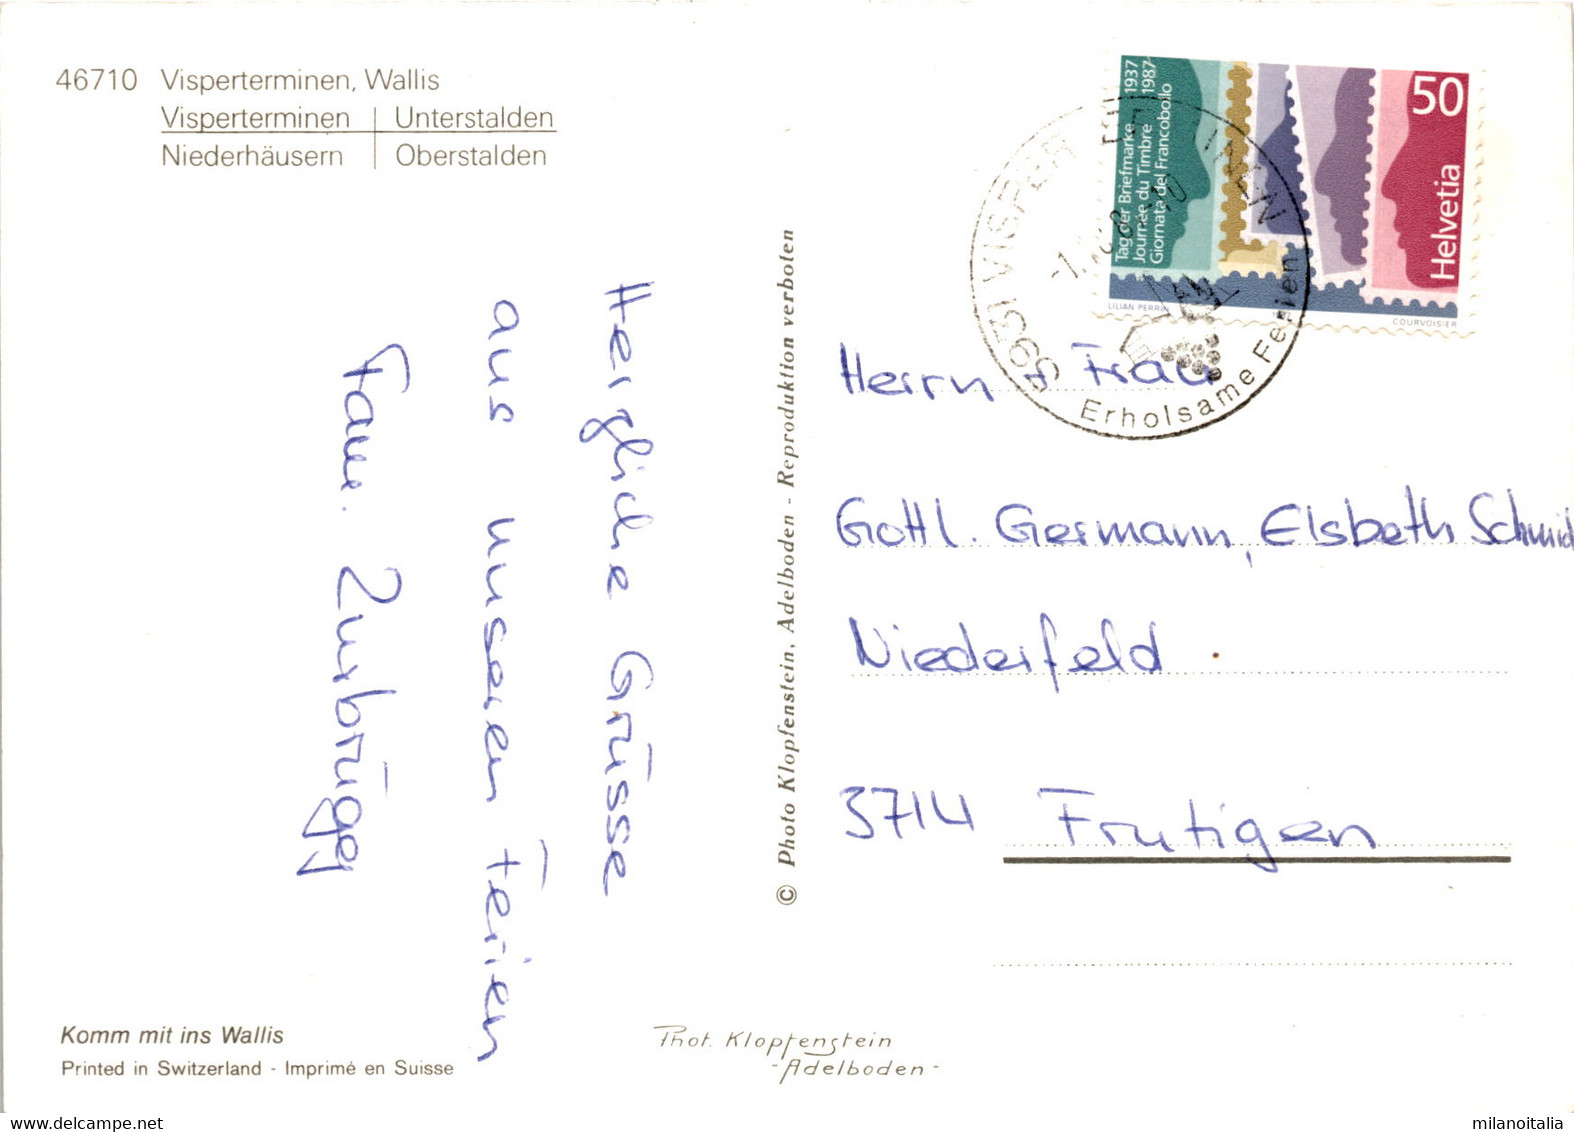 46710 Visperterminen, Wallis
Visperterminen | Unterstalden
Niederhäusern | Oberstalden
Herzliche Grüsse
aus unseren Ferien
Fam. Zurbrügg
Komm mit ins Wallis
Printed in Switzerland - Imprimé en Suisse
© Photo Klopfenstein, Adelboden - Reproduktion verboten
Phot. Klopfenstein
- Adelboden -
Tag der Briefmarke 1937
Journée du Timbre 1987
Giornata del Francobollo
50
Helvetia
LILIAN PERRIN
COURVOISIER
3931 VISPERTERMINEN
Erholsame Ferien
Herrn + Frau
Gottl. Germann, Elsbeth Schmid
Niederfeld
3714 Frutigen
www.delcampe.net
milanoitalia